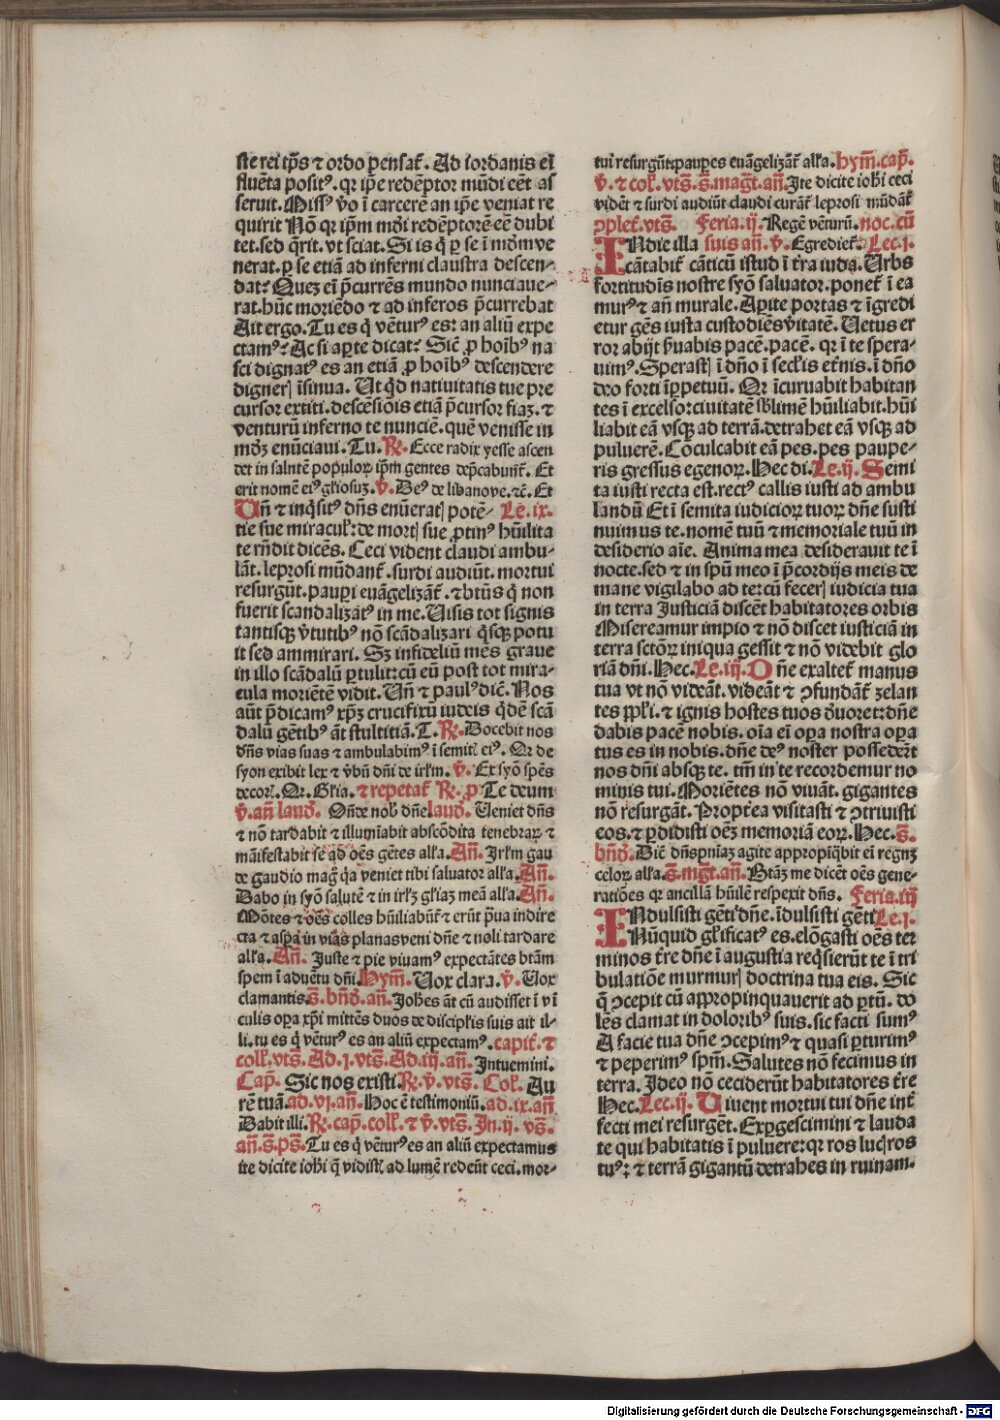 ste rei tp̄s ⁊ ordo pensat̄. Ad iordanis eī
fluēta positꝰ. qr ip̄e redēptor mūdi eēt as
seruit. Missꝰ v̄o ī carcerē an ip̄e veniat re
quirit Nō qr ip̄m mūdi redēptorē eē dubi
tet. sed q̄rit. vt sciat. Si is q̄ p se ī mūdm ve
nerat. p se etiā ad inferni claustra descen-
dat? Quez eī p̄currēs mundo nunciaue-
rat. hūc moriēdo ⁊ ad inferos p̄currebat
Ait ergo. Tu es q̄ vētur̄ꝰ es: an aliū expe
ctamꝰ? Ac si aperte dicat? Sicē pro hoībꝰ na
sci dignatꝰ es an etiā pro hoībꝰ descendere
digneris īsinua. Ut qd̄ natiuitatis tue pre
cursor extiti. descēsiōis etiā p̄cursor fiaz. ⁊
venturū inferno te nunciē. quē venisse in
mūdz enūciaui. Tu. R̄. Ecce radix yesse ascen
det in salutē populoꝝ ip̄m gentes dep̄cabunt̄. Et
erit nomē eiꝰ gl̄iosuz. v̄. Deꝰ de libano ve. ⁊c̄. Et
Un̄ ⁊ inq̄sitꝰ dn̄s enūeratis potē- Le. ix.
tie sue miraculis: de mortis sue protinꝰ hūilita
te rn̄dit dicēs. Ceci vident claudi ambu-
lāt. leprosi mūdant̄. surdi audiūt. mortui
resurgūt. pauperi euāgelizāt̄. ⁊ btūs q̄ non
fuerit scandalizatꝰ in me. Uisis tot signis
tantisqꝫ v̄tutibꝰ nō scādalizari q̄sqꝫ potu
it sed ammirari. Sz infideliū mēs graue
in illo scādalū pertulit: cū eū post tot mira-
cula moriētē vidit. Un̄ ⁊ paulꝰ dic̄. Nos
aūt p̄dicamꝰ xp̄z crucifixū iudeis q̄dē scā
dalū gētibꝰ āt stultitiā. T. R̄. Docebit nos
dn̄s vias suas ⁊ ambulabimꝰ ī semitis eiꝰ. Qr de
syon exibit lex ⁊ v̄bū dn̄i de irl̄m. v̄. Ex syō spēs
decoris. Qr. Gl̄ia. ⁊ repetat̄ R̄. p Te deum
v̄. an̄ laud̄. On̄de nob̄ dn̄e laud̄. Ueniet dn̄s
⁊ nō tardabit ⁊ illumīabit abscōdita tenebraꝝ ⁊
māifestabit se ad oēs gētes all̄a. An̄. Irl̄m gau
de gaudio mag̅ q̄a veniet tibi saluator all̄a. An̄.
Dabo in syō salutē ⁊ in irl̄z gl̄iaz meā all̄a. An̄.
Mōtes ⁊ oēs colles hūiliabūt̄ ⁊ erūt p̄ua indire
cta ⁊ aspa in vias planas veni dn̄e ⁊ noli tardare
all̄a. An̄. Juste ⁊ pie viuamꝰ expectātes btām
spem ī aduētu dn̄i. Hym̄. Uox clara. v̄. Uox
clamantis. S̄. bn̄d̄. an̄. Joh̄es āt cū audisset ī vī
culis opera xp̄i mittēs duos de discipl̄is suis ait il-
li. tu es q̄ vēturꝰ es an aliū expectamꝰ. capit̄. ⁊
coll̄. vts̄. Ad. j. vts̄. Ad. iij. an̄. Intuemini.
Cap̄. Sic nos existi. R̄. v̄. vts̄. Col̄. Au
rē tuā. ad. vj. an̄. Hoc ē testimoniū. ad. ix. an̄
Dabit illi. R̄. cap̄. coll̄. ⁊ v̄. vts̄. In. ij. vs̄.
an̄. S̄. ps̄. Tu es q̄ vēturꝰ es an aliū expectamus
ite dicite ioh̄i q̄ vidistis ad lumē redeūt ceci. mor-
tui resurgūt: paupes euāgelizāt̄ all̄a. hym̄. cap̄.
v̄. ⁊ col̄. vts̄. S̄. mag̅t. an̄. Ite dicite ioh̄i ceci
vidēt ⁊ surdi audiūt claudi curāt̄ leprosi mūdāt̄
ꝯplet̄. vts̄. Feria. ij. Regē vēturū. noc. cū
IN die illa suis an̄. v̄. Egrediet̄. Lec. j.
cātabit̄ cāticū istud ī t̄ra iuda. Urbs
fortitudīs nostre syō saluator. ponet̄ ī ea
murꝰ ⁊ an̄ murale. Aperite portas ⁊ īgredi
etur gēs iusta custodiēs v̄itatē. Uetus er
ror abijt s̄uabis pacē. pacē. qr ī te spera-
uimꝰ. Sperastis ī dn̄o ī seclis et̄nis. ī dn̄o
deo forti īpperpetuū. Qr īcuruabit habitan
tes ī excelso: ciuitatē sublimē hūiliabit. hūi
liabit eā vsqꝫ ad terrā. detrahet eā vsqꝫ ad
puluerē. Cōculcabit eā pes. pes paupe-
ris gressus egenoꝝ. Hec di. Le. ij. Semi
ta iusti recta est. rectꝰ callis iusti ad ambu
landū Et ī semita iudicioꝝ tuoꝝ dn̄e susti
nuimus te. nomē tuū ⁊ memoriale tuū in
desiderio aīe. Anima mea desiderauit te ī
nocte. sed ⁊ in spū meo ī p̄cordijs meis de
mane vigilabo ad te: cū feceris iudicia tua
in terra Justiciā discēt habitatores orbis
Misereamur impio ⁊ nō discet iusticiā in
terra sctōꝝ iniqua gessit ⁊ nō videbit glo
riā dn̄i. Hec. Le. iij. Dn̄e exaltet̄ manus
tua vt nō videāt. videāt ⁊ ꝯfundāt̄ zelan
tes ppl̄i. ⁊ ignis hostes tuos d̄uoret: dn̄e
dabis pacē nobis. oīa eī opera nostra opera
tus es in nobis. dn̄e deꝰ noster possedert̄
nos dn̄i absqꝫ te. tm̄ in te recordemur no
minis tui. Moriētes nō viuāt. gigantes
nō resurgāt. Propt̄ea visitasti ⁊ ꝯtriuisti
eos. ⁊ perdidisti oēz memoriā eoꝝ. Hec. S̄.
bn̄d̄. Dic̄ dn̄s pn̄iaz agite appropīq̄bit eī regnz
celoꝝ all̄a. S̄. mg̅t. an̄. Btāz me dicēt oēs gene-
ratiōes qr ancillā hūilē respexit dn̄s. Feria. iij
INdulsisti gēti dn̄e. īdulsisti gēti Le. j.
Nūquid gl̄ificatꝰ es. elōgasti oēs ter
minos t̄re dn̄e ī augustia reqsierūt te ī tri
bulatiōe murmuris doctrina tua eis. Sic
q̄ ꝯcepit cū appropinquauerit ad pertū. do
lēs clamat in doloribꝰ suis. sic facti sumꝰ
A facie tua dn̄e ꝯcepimꝰ ⁊ quasi perturimꝰ
⁊ peperimꝰ spm̄. Salutes nō fecimus in
terra. Ideo nō ceciderūt habitatores t̄re
Hec. Lec. ij. Uiuent mortui tui dn̄e int̄
fecti mei resurgēt. Expergescimini ⁊ lauda
te qui habitatis ī puluere: qr ros lucis ros
tuꝰ: ⁊ terrā gigantū detrahes in ruinam.
Digitalisierung gefördert durch die Deutsche Forschungsgemeinschaft - DFG